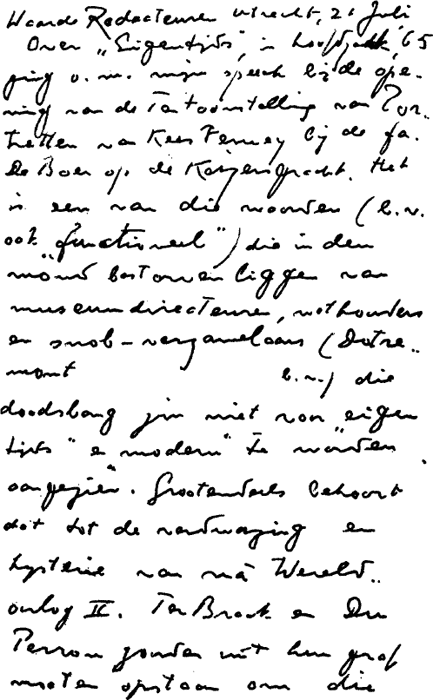 Waarde Redacteuren Utrecht, 21 Juli
Over „Eigentijds", in hoofdstuk, 65
ging o.m. mijn speech bij de ope-
ning van de Tentoonstelling van Por-
tretten van Kees Verwey bij de fa.
De Boer op de Keizersgracht. Het
is een van die woorden (b.v.
ook „functioneel") die in den
mond bestorven liggen van
museumdirecteuren, wethouders
en snob-verzamelaars (Dotre-
mont b.v.) die
doodsbang zijn niet voor „eigen
tijds" en modern" te worden
aangezien. Grootendeels behoort
dat tot de verdwazing en
hysterie van na Wereld-
oorlog II. Ter Braak en Du
Perron zouden uit hun graf
moeten opstaan om die